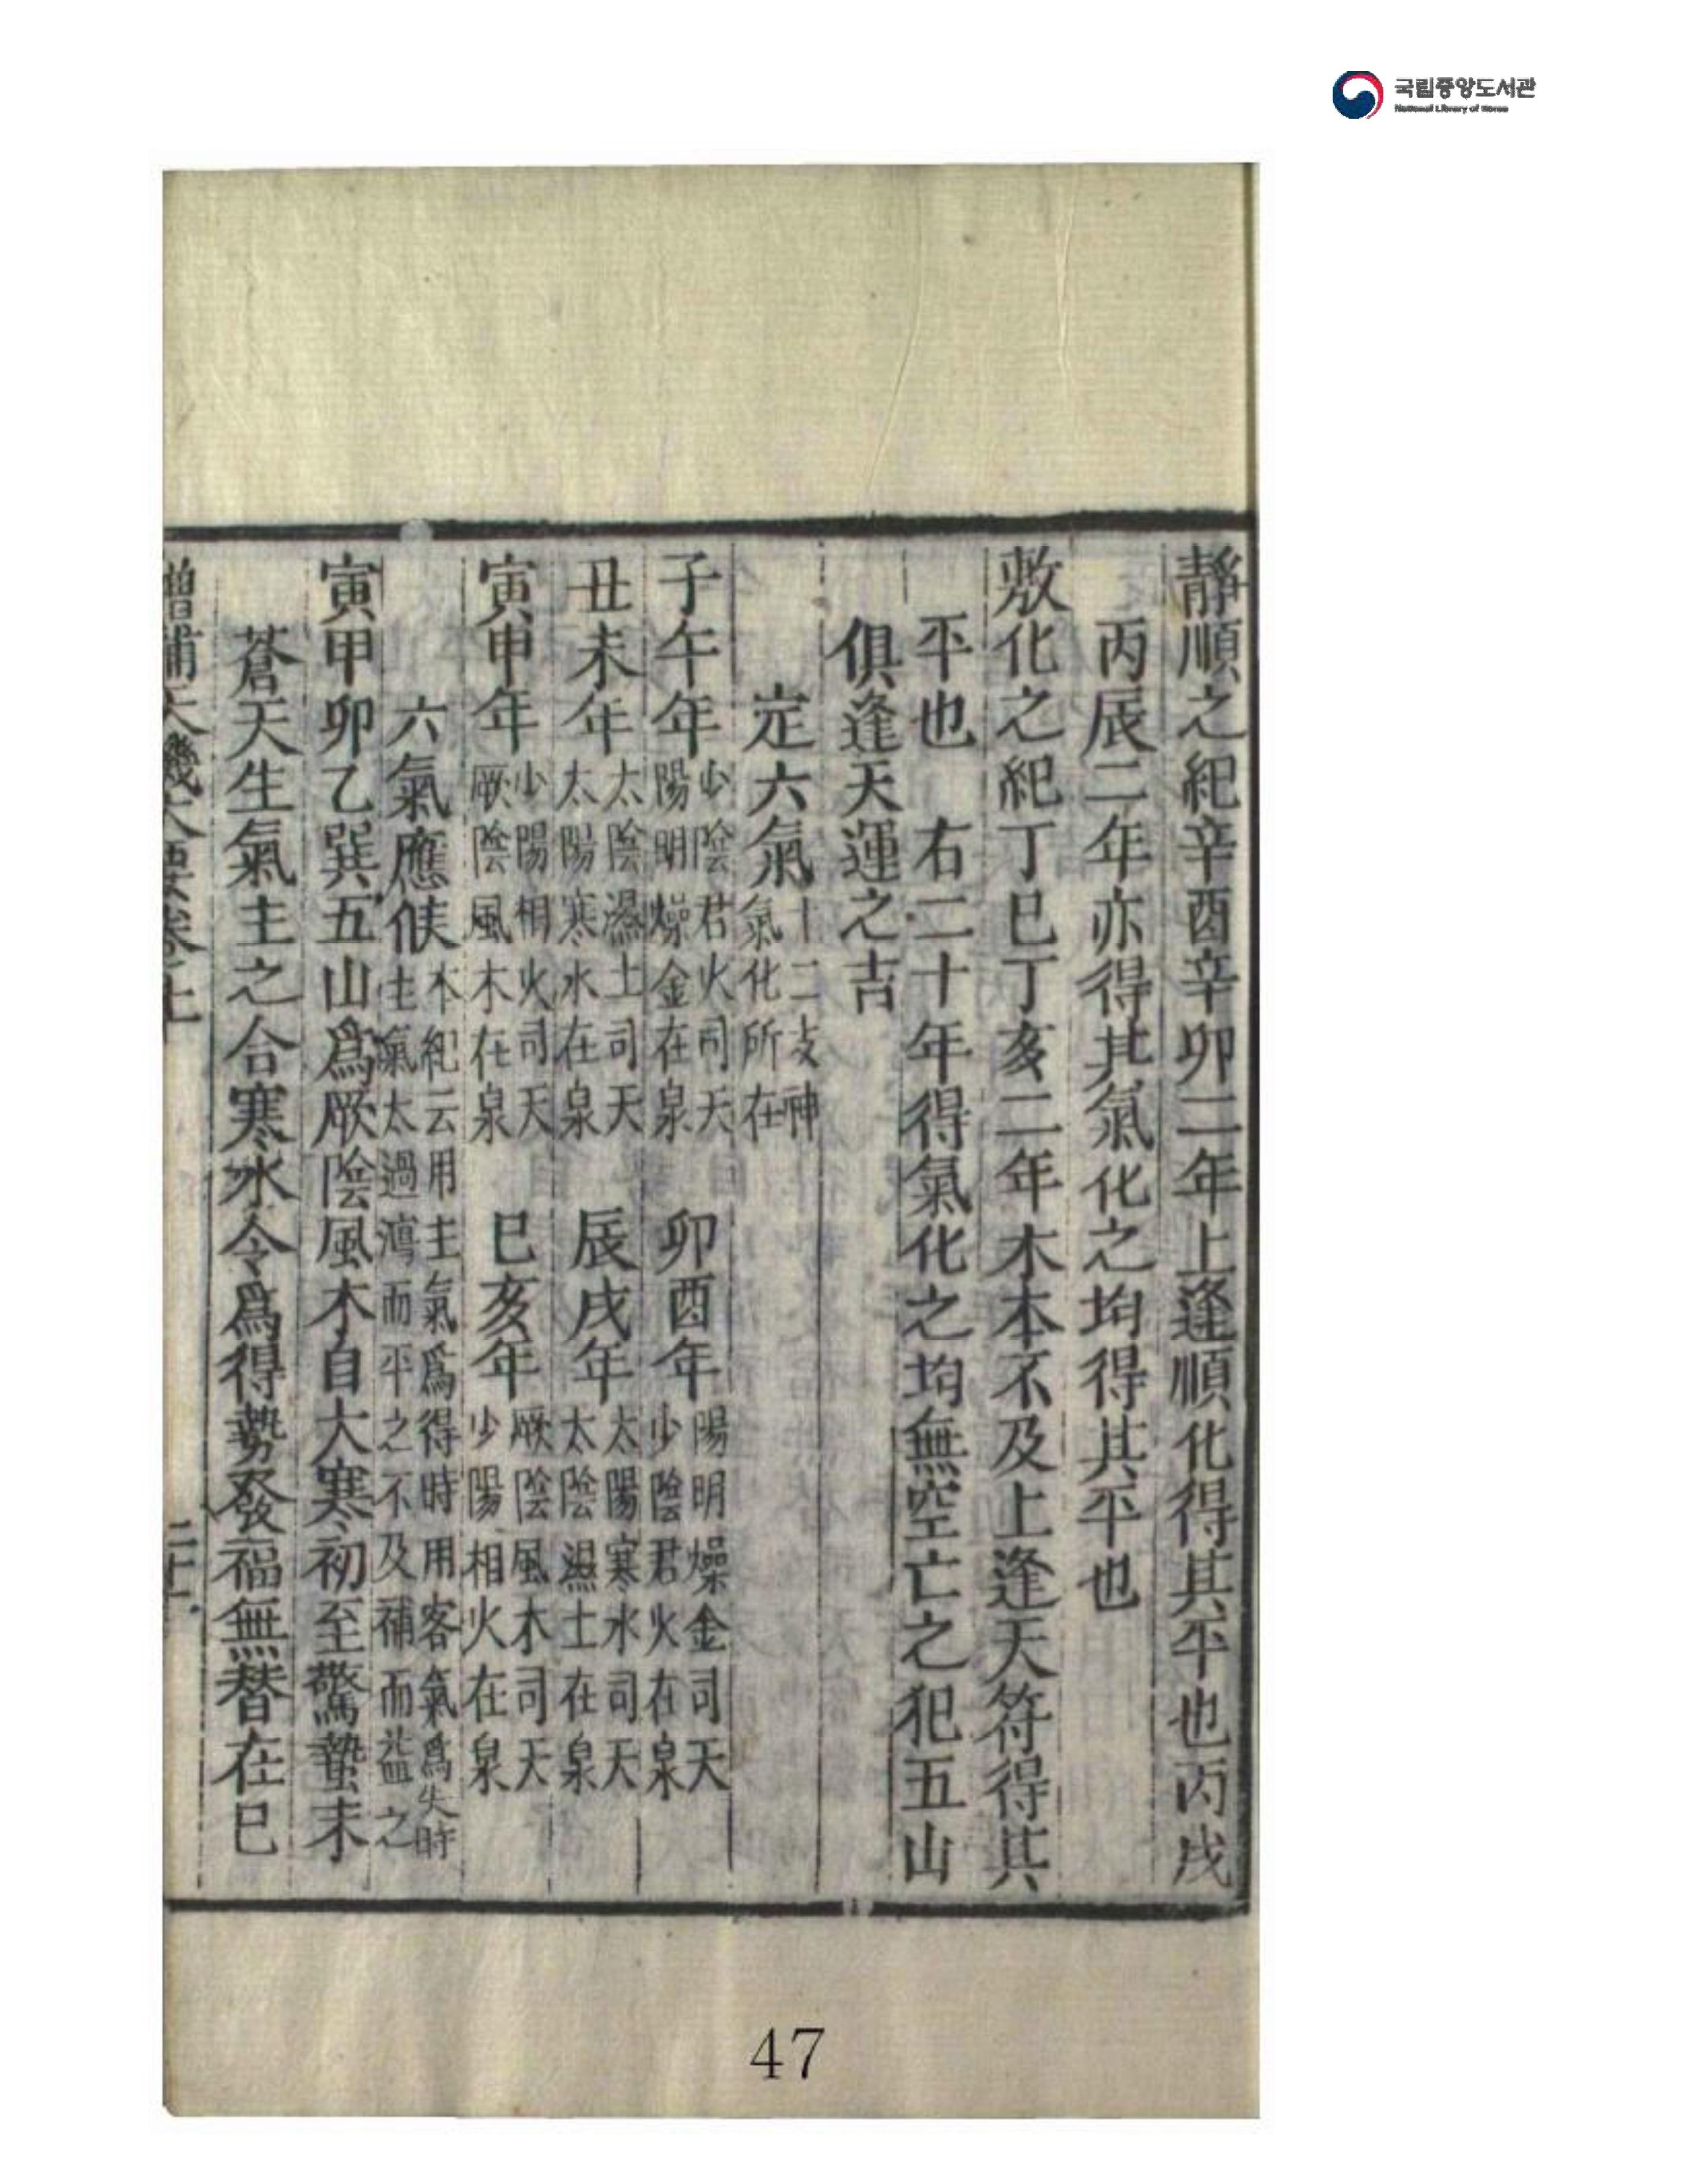 국립중앙도서관
National Library of Korea
靜順之紀辛酉辛卯二年上逢順化得其平也丙戌
丙辰二年亦得其氣化之均得其平也
敷化之紀丁巳丁亥二年木本不及上逢天符得其
平也　右二十年得氣化之均無空亡之犯五山
俱逢天運之吉
定六氣十二支神
氣化所在
子午年少陰君火司天
陽明燥金在泉
卯酉年陽明燥金司天
少陰君火在泉
丑未年太陰濕土司天
太陽寒水在泉
辰戌年太陽寒水司天
太陰濕土在泉
寅申年少陽相火司天
厥陰風木在泉
巳亥年厥陰風木司天
少陽相火在泉
六氣應候本紀云用主氣爲得時用客氣爲失時
主氣太過瀉而平之不及補而益之
寅甲卯乙巽五山爲厥陰風木自大寒初至驚蟄末
蒼天生氣主之合寒水令爲得勢發福無替在巳
增補天機大要卷上
47